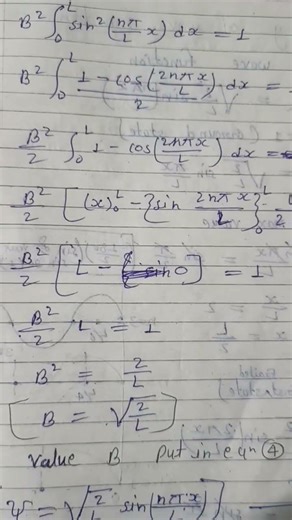 B² ∫₀ᴸ sin²(nπ/L x) dx = 1
B² ∫₀ᴸ (1 - cos(2nπx/L))/2 . dx =
B²/2 ∫₀ᴸ 1 - cos(2nπx/L) dx =
B²/2 [(x)₀ᴸ - {sin 2nπx/L}₀ᴸ
B²/2 [L - sin0] = 1
B²/2 . L = 1
B² = 2/L
[B = √(2/L)]
Value B Put in eqn ④
ψ = √(2/L) sin(nπx/L)